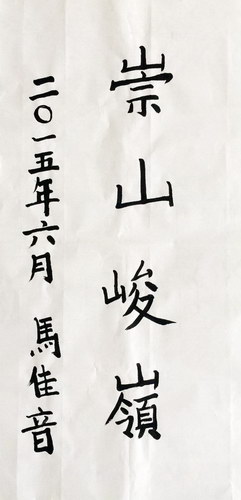 崇山峻嶺
二〇一五年六月 馬佳音